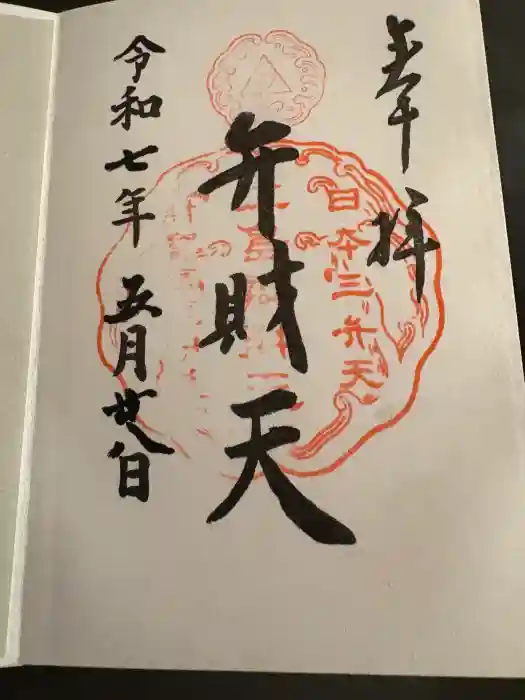 奉拝
日本三弁天
弁財天
令和七年五月廿八日